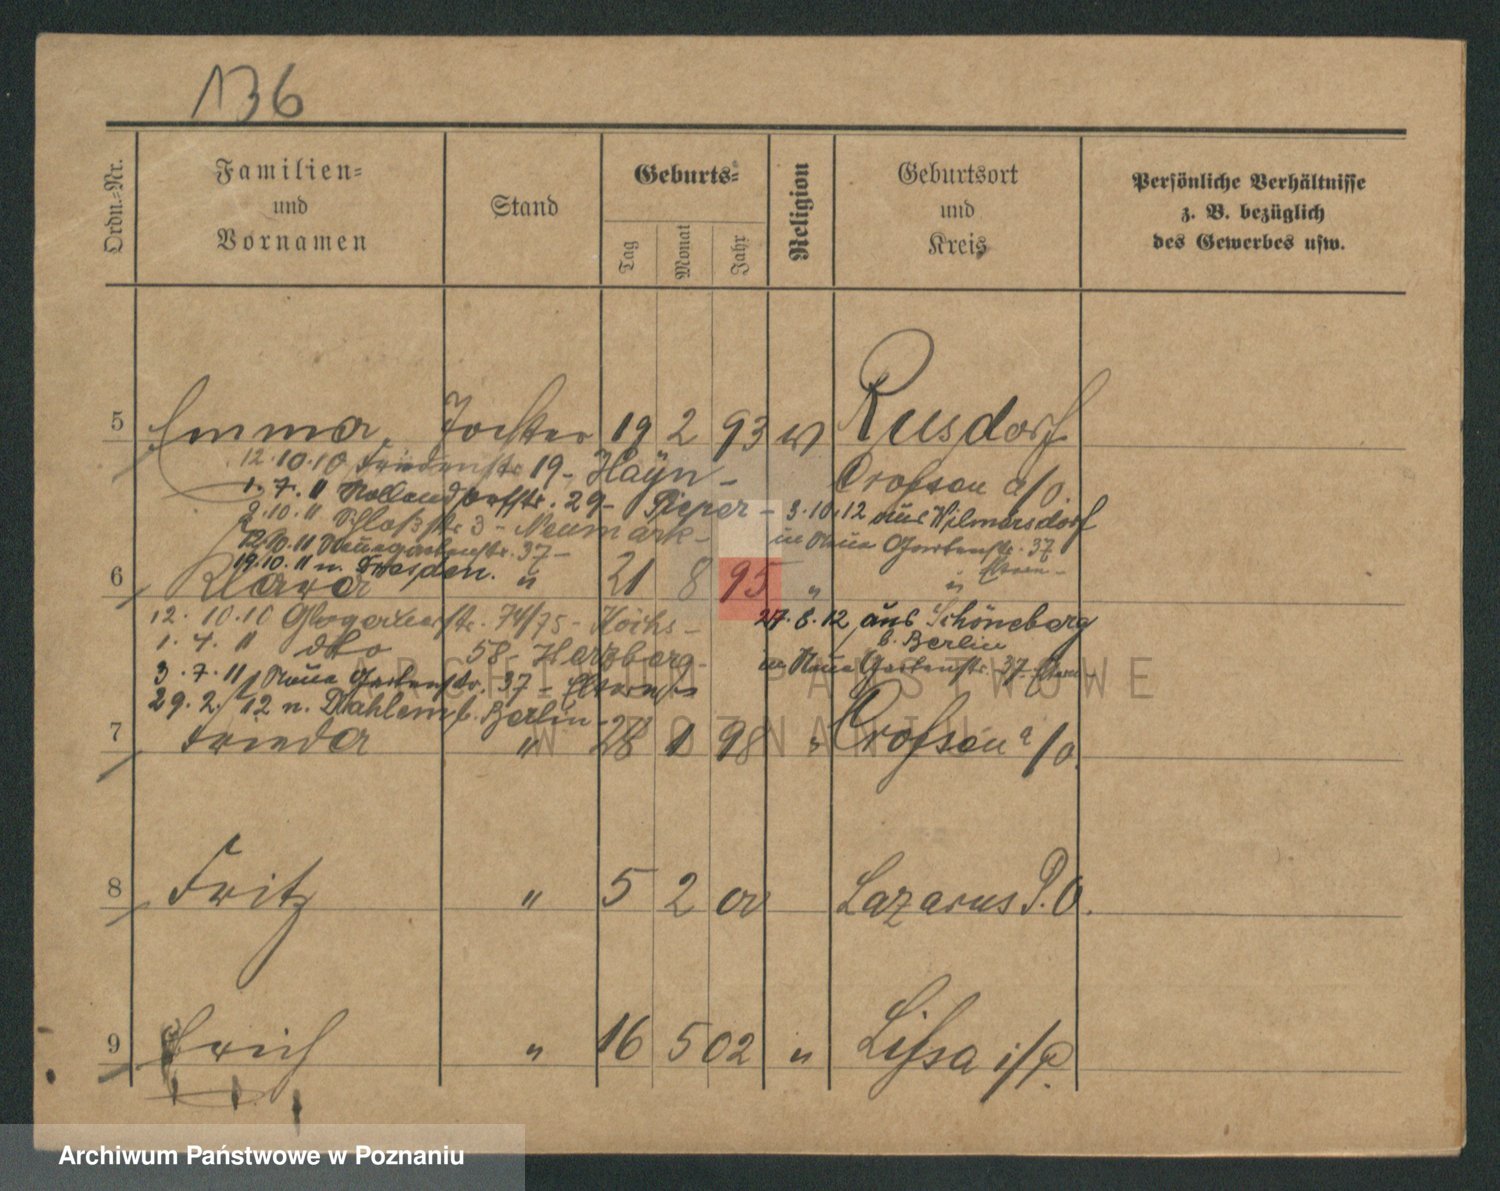 136
Ordn.-Nr.
Familien- und Vornamen
Stand
Geburts-
Tag
Monat
Jahr
Religion
Geburtsort und Kreis
Persönliche Verhältnisse
z. B. bezüglich
des Gewerbes usw.
5 Emma, Tochter 19 2 93 Rusdorf
12.10.10 Friedenstr 19 - Hayn - Crossen a/O.
1. 7. 11 Nollendorfstr. 29 - Pieper - 3.10.12 aus Wilmersdorf
2.10.11 Schloßstr 3 - Neumark - in Neue Gartenstr. 37
12.10.11 Neue Gartenstr. 37 - Eltern -
19.10.11 n. Dresden.
6 Klara " 21 8 95 " "
12. 10.10 Glogauerstr. 74/75 - 27.8.12 aus Schöneberg
b. Berlin
1. 7. 11 dto 58 - Herzberg - in Neue Gartenstr. 37 - Eltern -
3. 7. 11 Neue Gartenstr. 37 - Eltern -
29. 2. 12 n. Dahlem b. Berlin -
7 Frieda " 28 1 98 " Crossen a/O.
8 Fritz " 5 2 00 Lazarus P.O.
9 Erich " 16 5 02 " Lissa i/P.
ARCHIWUM PAŃSTWOWE
W POZNANIU
Archiwum Państwowe w Poznaniu